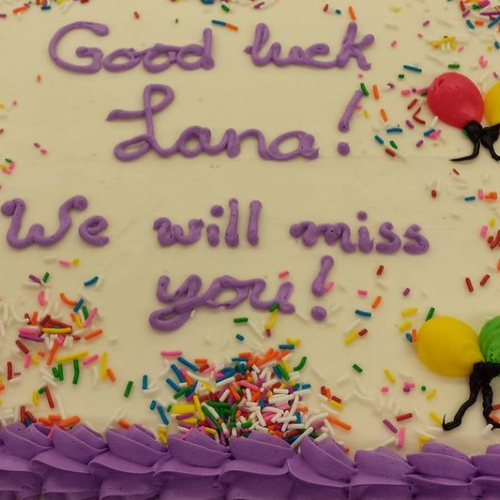 Good luck
Lana!
We will miss
you!